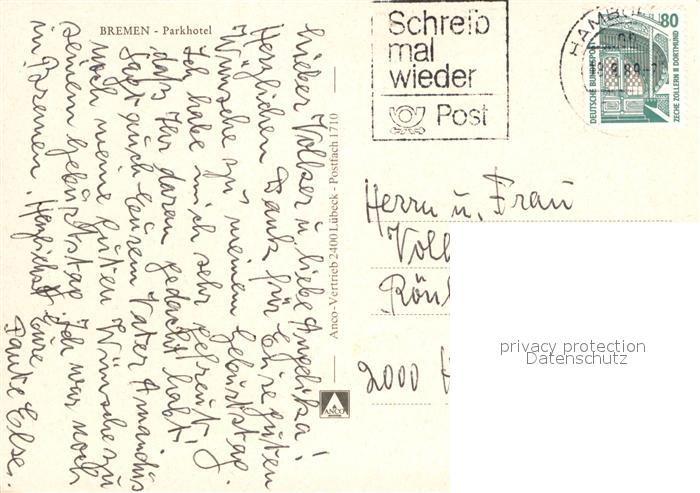 BREMEN - Parkhotel
Lieber Volker u. liebe Angelika!
Herzlichen Dank für Eure guten
Wünsche zu meinem Geburtstag.
Ich habe mich sehr gefreut,
daß Ihr daran gedacht habt.
Sagt auch Eurem Vater Amandus
noch meine guten Wünsche zu
seinem Geburtstag. Ich war noch
in Bremen. Herzlichst Eure
Tante Else.
Anco-Vertrieb 2400 Lübeck - Postfach 1710
ANCO
Schreib
mal
wieder
Post
HAMBU
80
DEUTSCHE BUNDESPOST
ZECHE ZOLLERN II DORTMUND
Herrn u. Frau
Voll
Rön
2000 H
privacy protection
Datenschutz